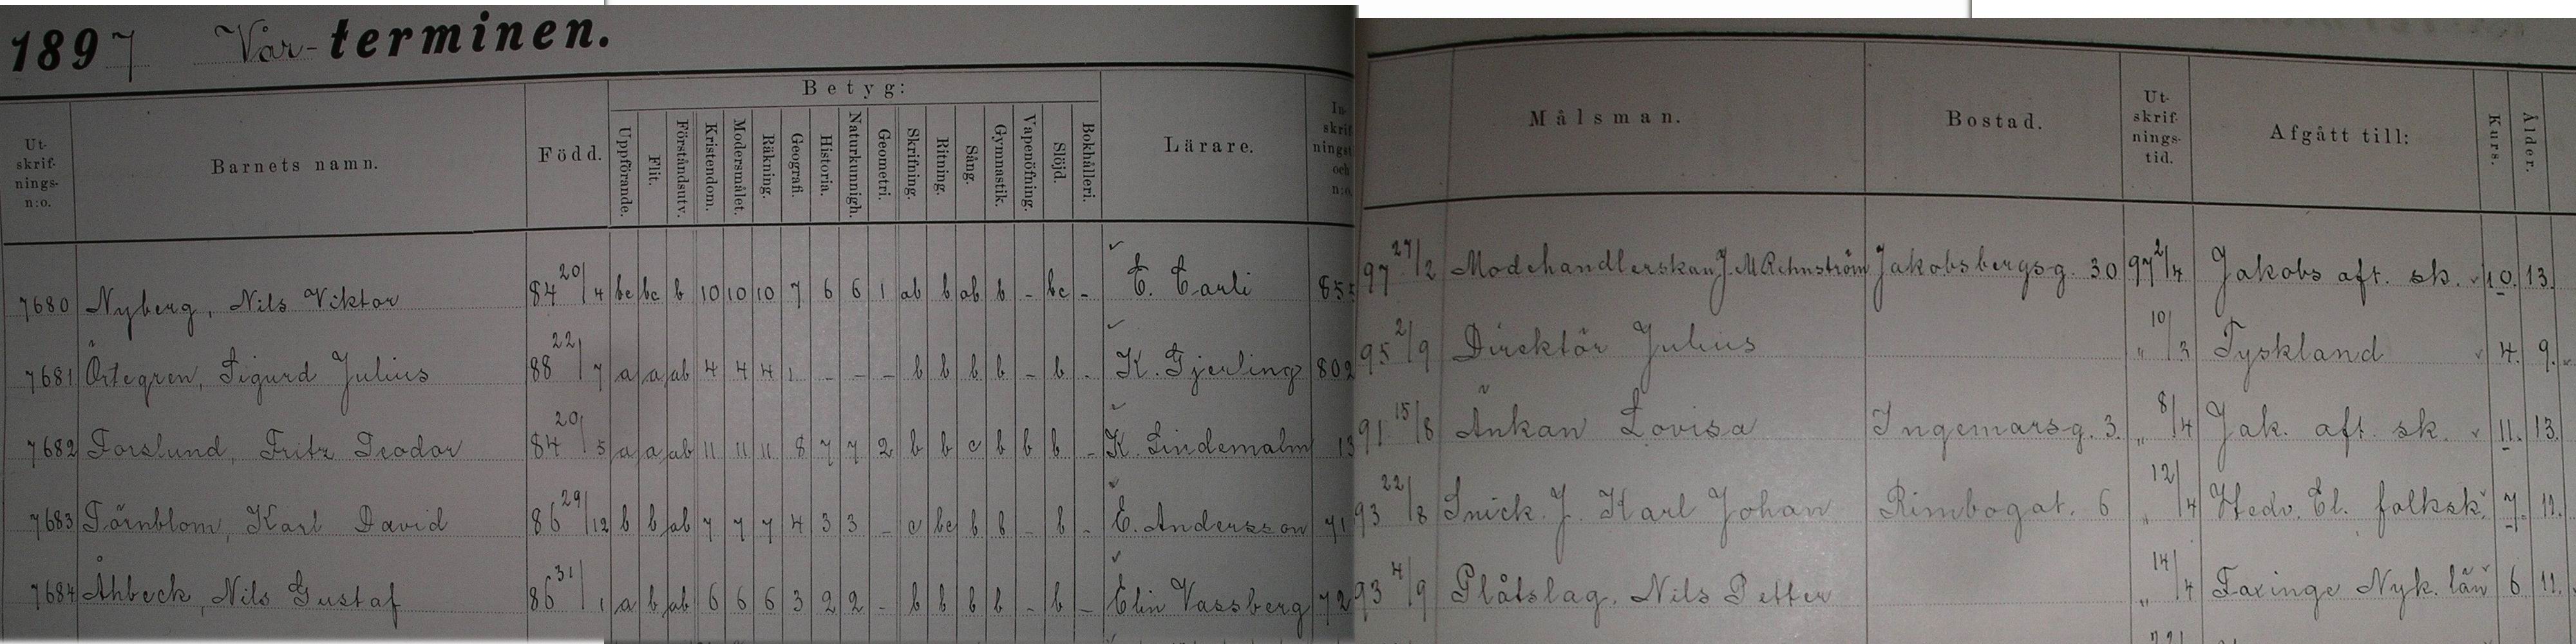 1897 Vår-terminen.
Ut-skrif-nings-n:o. Barnets namn. Född. Betyg: Uppförande. Flit. Förståndsutv. Kristendom. Modersmålet. Räkning. Geografi. Historia. Naturkunnigh. Geometri. Skrifning. Ritning. Sång. Gymnastik. Vapenöfning. Slöjd. Bokhålleri. Lärare. In-skrif-nings och n:o. Målsman. Bostad. Ut-skrif-nings-tid. Afgått till: Kurs. Ålder.
7680 Nyberg, Nils Viktor 84 20/4 bc bc b 10 10 10 7 6 6 1 ab b ab b - bc - E. Carli 855 97 27/2 Modehandlerskan J. M. Rehnström Jakobsbergsg. 30 97 2/4 Jakobs aft. sk. 10. 13.
7681 Örtegren, Sigurd Julius 88 22/7 a a ab 4 4 4 1 - - - b b b b - b - K. Gjerling 802 95 2/9 Direktör Julius " 10/3 Tyskland 4. 9.
7682 Forslund, Fritz Teodor 84 20/5 a a ab 11 11 11 8 7 7 2 b b c b b b - K. Lindemalm 13 91 15/8 Änkan Lovisa Ingemarsg. 3. " 8/4 Jak. aft. sk. 11. 13.
7683 Törnblom, Karl David 86 29/12 b b ab 7 7 7 4 3 3 - c bc b b - b - E. Andersson 71 93 22/8 Snick. J. Karl Johan Rimbogat. 6 " 12/4 Hedv. El. folksk. 7. 11.
7684 Åhbeck, Nils Gustaf 86 31/1 a b ab 6 6 6 3 2 2 - b b b b - b - Elin Vassberg 72 93 4/9 Plåtslag. Nils Petter " 14/4 Taxinge Nyk. län 6 11.